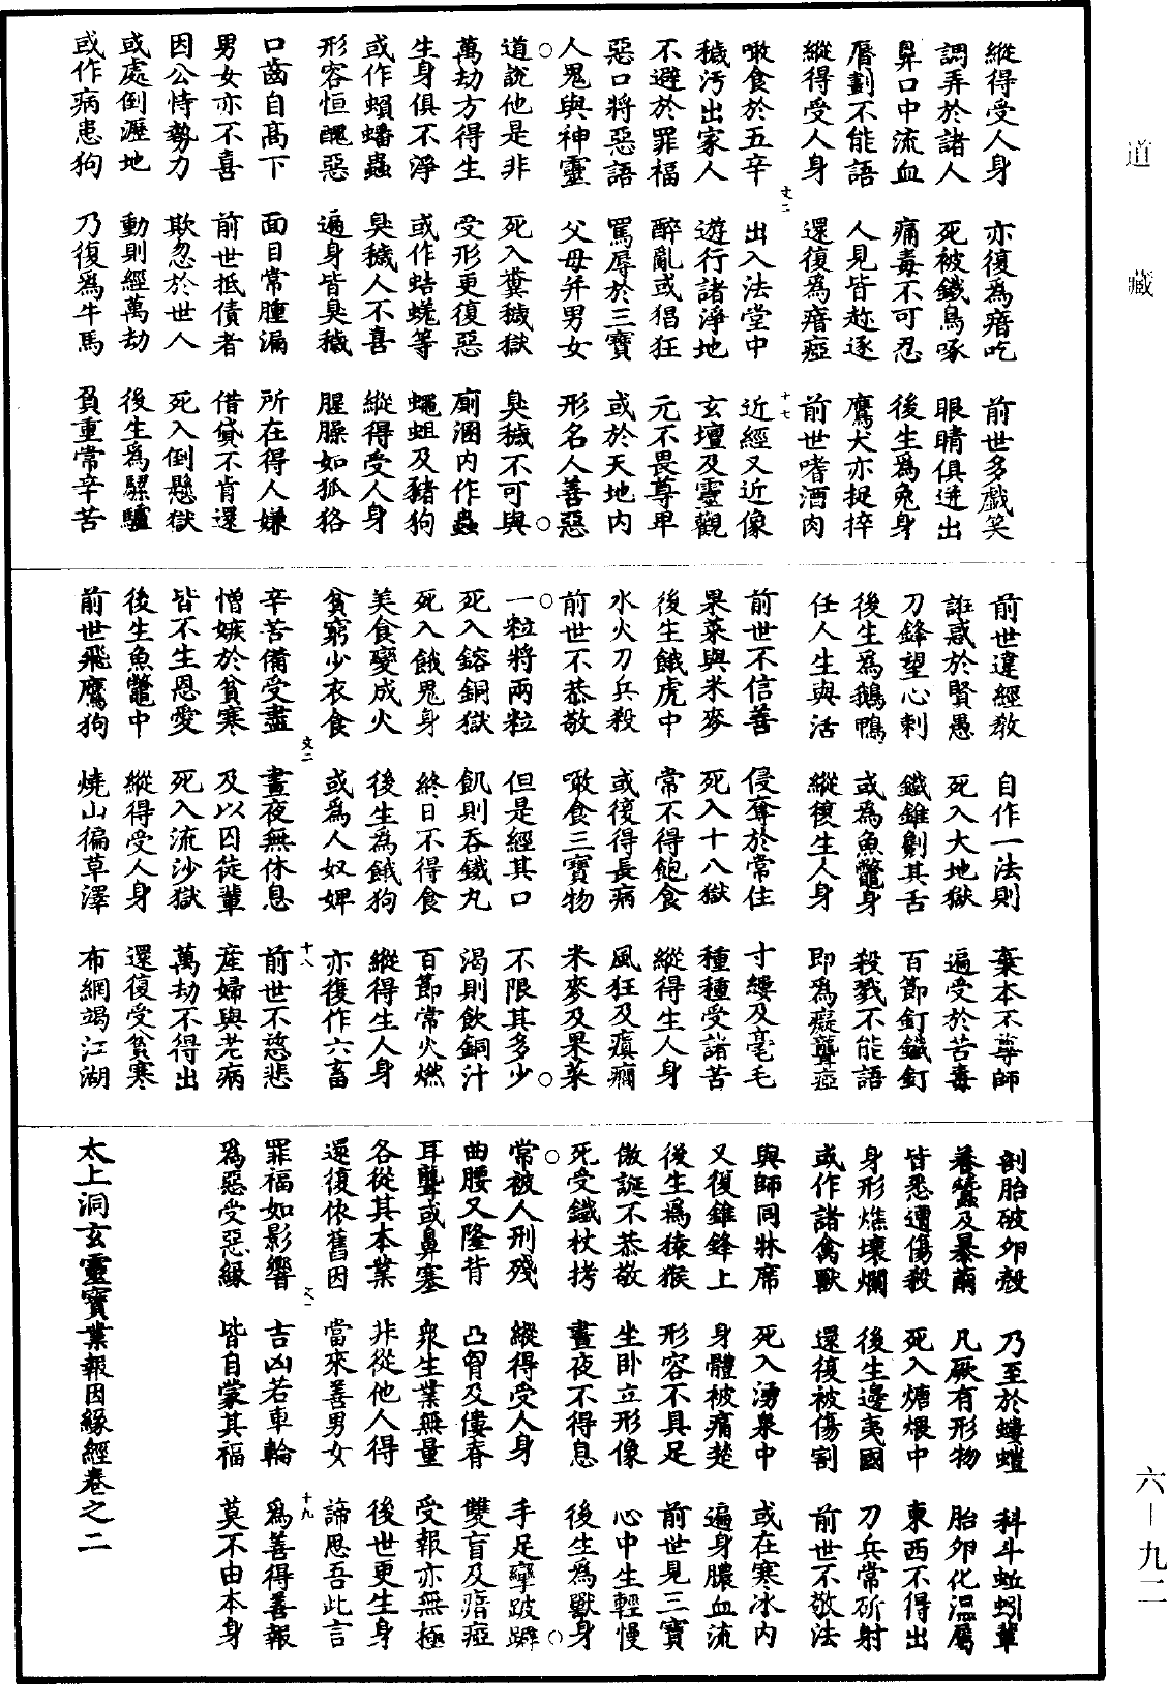 道藏
縱得受人身　亦復爲瘖吃　前世多戲笑
調弄於諸人　死被鐵鳥啄　眼睛俱迸出
鼻口中流血　痛毒不可忍　後生爲兔身
脣劃不能語　人見皆趂逐　鷹犬亦捉捽
縱得受人身　還復爲瘖瘂　前世嗜酒肉
文二　十七
噉食於五辛　出入法堂中　近經又近像
穢汚出家人　遊行諸淨地　玄壇及靈觀
不避於罪福　醉亂或猖狂　元不畏尊卑
惡口將惡語　罵辱於三寶　或於天地內
人鬼與神靈　父母并男女　形名人善惡
道說他是非　死入糞穢獄　臭穢不可與
萬劫方得生　受形更復惡　廁溷內作蟲
生身俱不淨　或作蛣蜣等　蠅蛆及豬狗
或作蝜蟠蟲　臭穢人不喜　縱得受人身
形容恒醜惡　遍身皆臭穢　腥臊如狐狢
口齒自高下　面目常腫漏　所在得人嫌
男女亦不喜　前世抵債者　借貸不肯還
因公恃勢力　欺忽於世人　死入倒懸獄
或處倒瀝地　動則經萬劫　後生爲騾驢
或作病患狗　乃復爲牛馬　負重常辛苦
前世違經教　自作一法則　棄本不尊師
誑惑於賢愚　死入大地獄　遍受於苦毒
刀鋒望心刺　鐵錐劖其舌　百節釘鐵釘
後生爲鵝鴨　或爲魚鼈身　殺戮不能語
任人生與活　縱復生人身　即爲癡聾瘂
前世不信善　侵奪於常住　寸縷及毫毛
果菜與米麥　死入十八獄　種種受諸苦
後生餓虎中　常不得飽食　縱得生人身
水火刀兵殺　或復得長病　風狂及癲癇
前世不恭敬　噉食三寶物　米麥及果菜
一粒將兩粒　但是經其口　不限其多少
死入鎔銅獄　飢則吞鐵丸　渴則飲銅汁
死入餓鬼身　終日不得食　百節常火燃
美食變成火　後生爲餓狗　縱得生人身
貧窮少衣食　或爲人奴婢　亦復作六畜
文二　十八
辛苦備受盡　晝夜無休息　前世不慈悲
憎嫉於貧寒　及以囚徒輩　產婦與老病
皆不生恩愛　死入流沙獄　萬劫不得出
後生魚鼈中　縱得受人身　還復受貧寒
前世飛鷹狗　燒山徧草澤　布網竭江湖
剖胎破卵殼　乃至於螻螘　科斗蚯蚓輩
養蠶及暴繭　凡厥有形物　胎卵化溫屬
皆悉遭傷殺　死入煻煨中　東西不得出
身形燋壞爛　後生邊夷國　刀兵常斫射
或作諸禽獸　還復被傷割　前世不敬法
與師同牀席　死入湧泉中　或在寒冰內
又復錐鋒上　身體被痛楚　遍身膿血流
後生爲猿猴　形容不具足　前世見三寶
傲誕不恭敬　坐卧立形像　心中生輕慢
死受鐵杖拷　晝夜不得息　後生爲獸身
常被人刑殘　縱得受人身　手足攣跛躃
曲腰又隆背　凸胷及僂脊　雙盲及瘖瘂
耳聾或鼻塞　衆生業無量　受報亦無極
各從其本業　非從他人得　後世更生身
還復依舊因　當來善男女　諦思吾此言
十九
罪福如影響　吉凶若車輪　爲善得善報
爲惡受惡緣　皆自蒙其福　莫不由本身
太上洞玄靈寶業報因緣經卷之二
六—九二